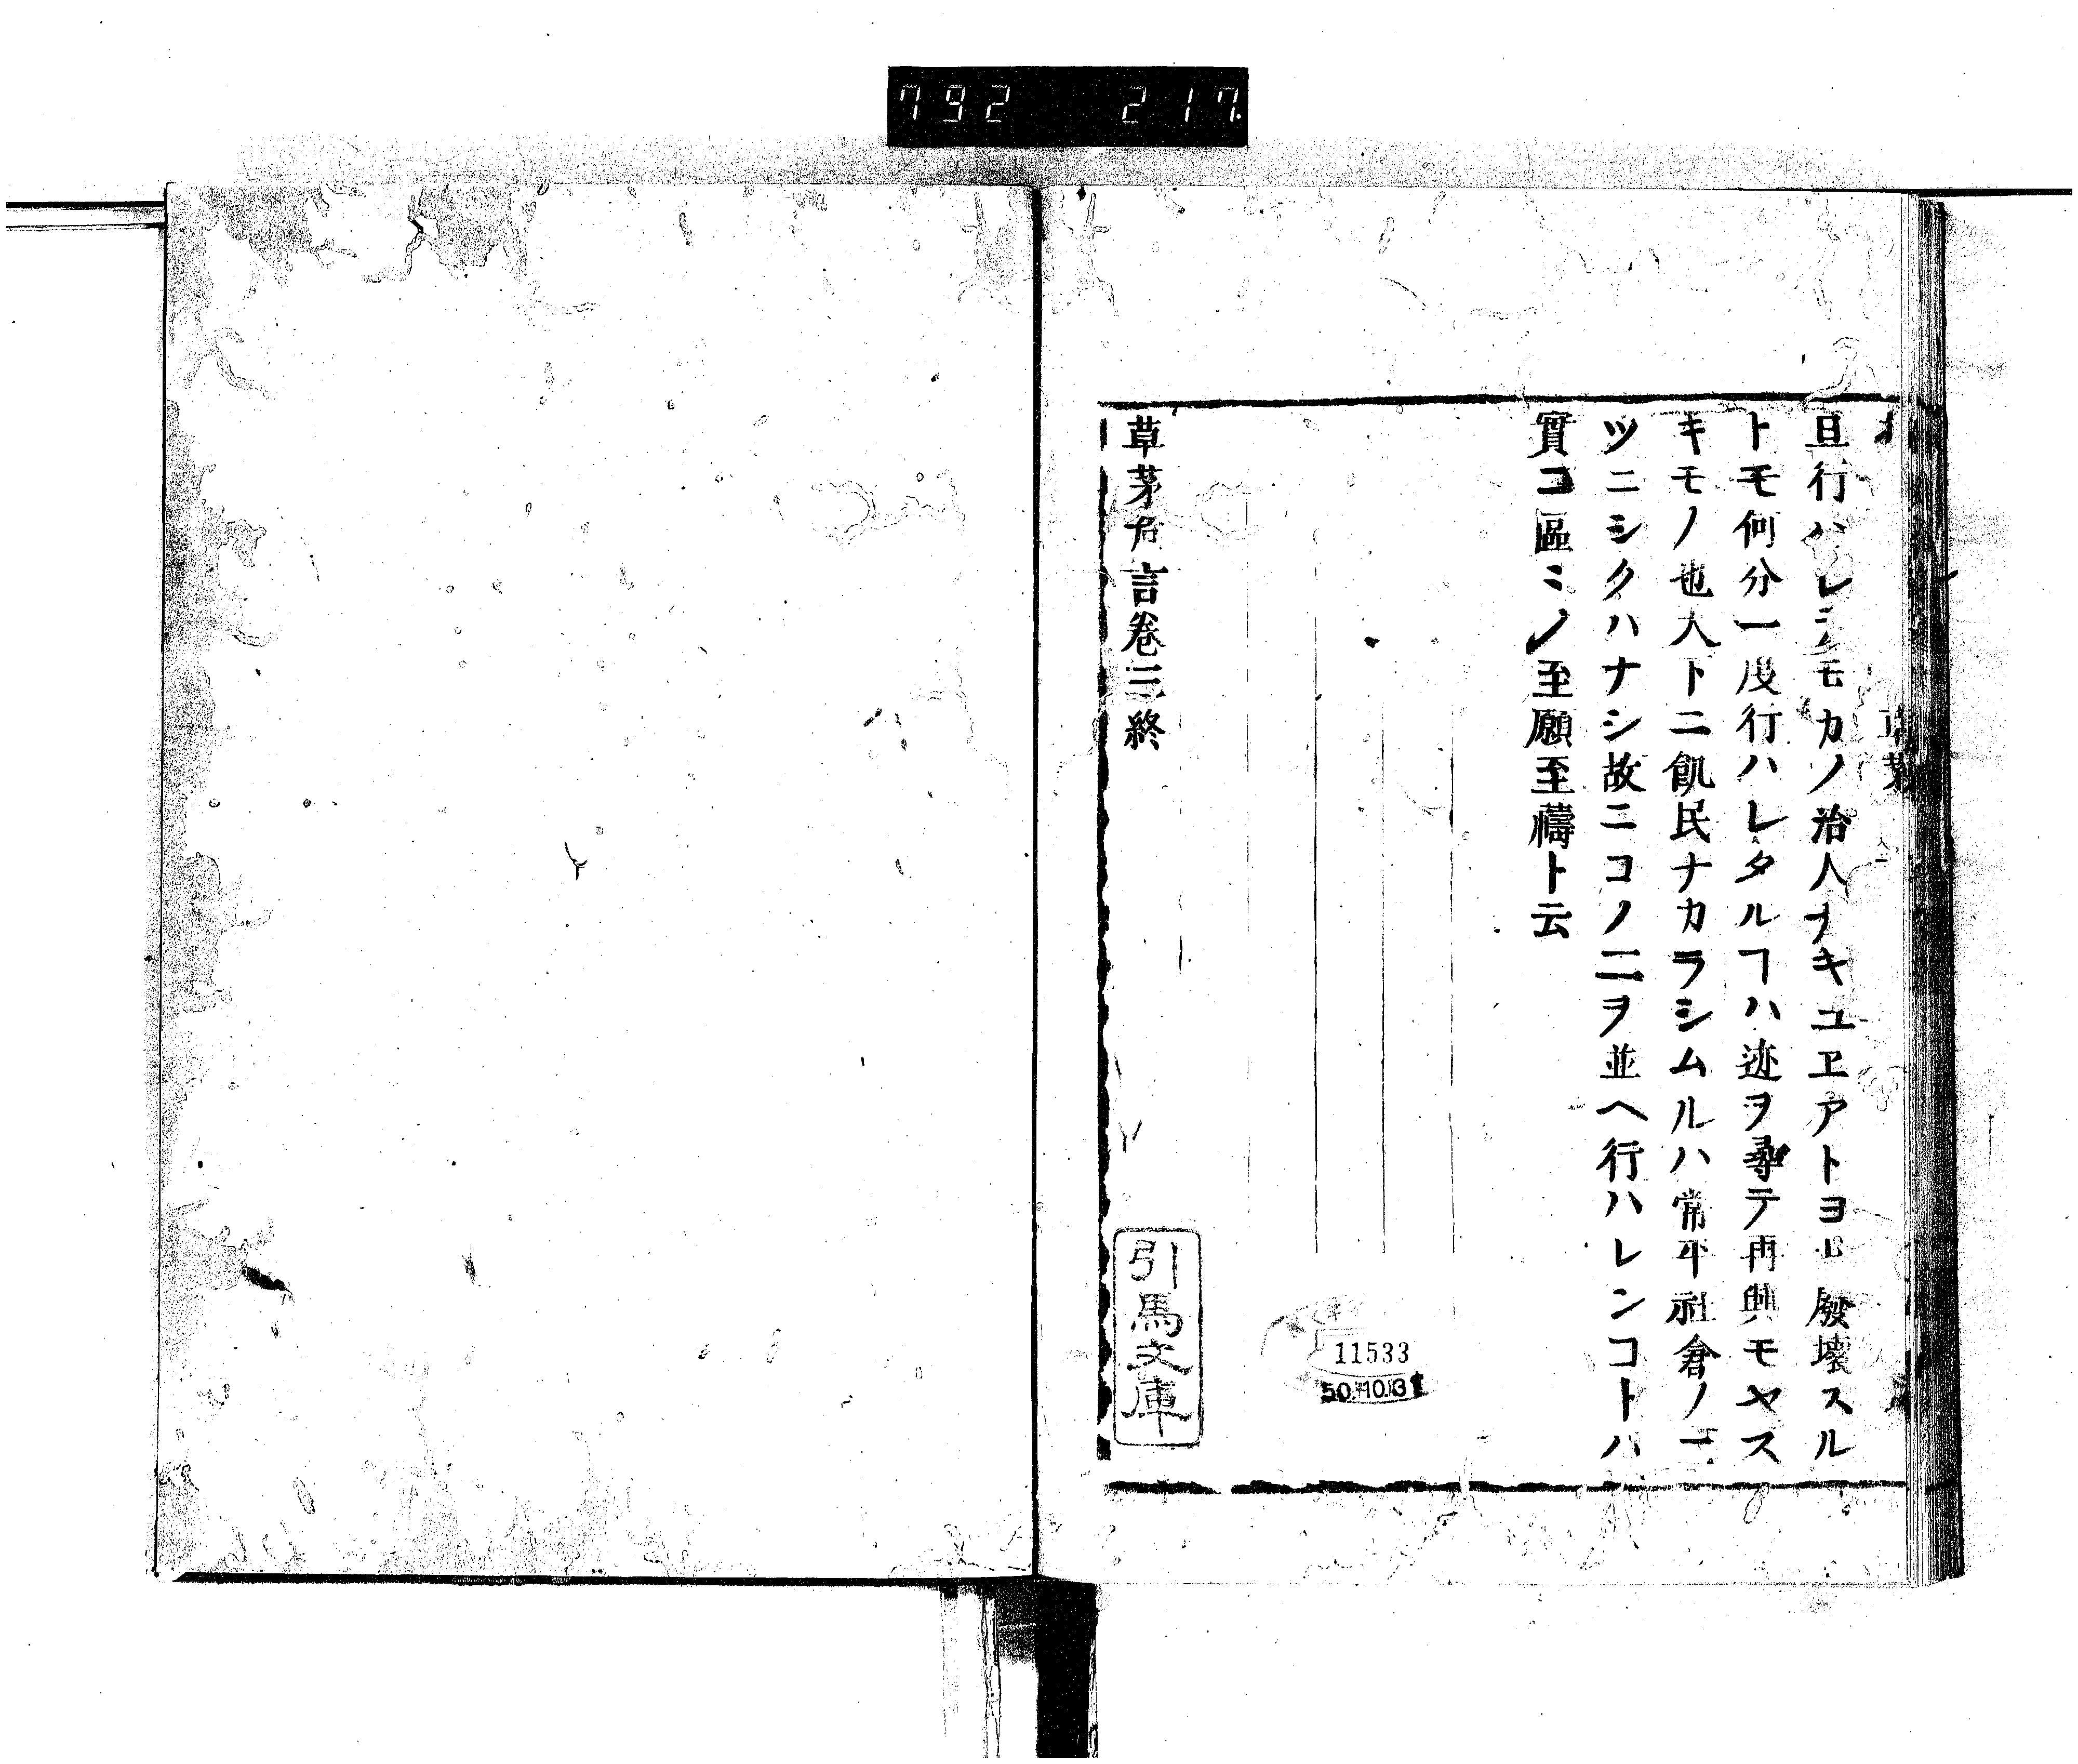 792 217
旦行ハレシモカノ治人ナキユヱアトヨリ廢壞スル
トモ何分一度行ハレタルヿハ迹ヲ尋テ再興モヤス
キモノ也大卜ニ飢民ナカラシムルハ常平社倉ノ二
ツニシクハナシ故ニコノ二ヲ並ヘ行ハレンコトハ
實コ區〻ノ至願至禱ト云
草茅危言卷三終
引馬文庫
11533